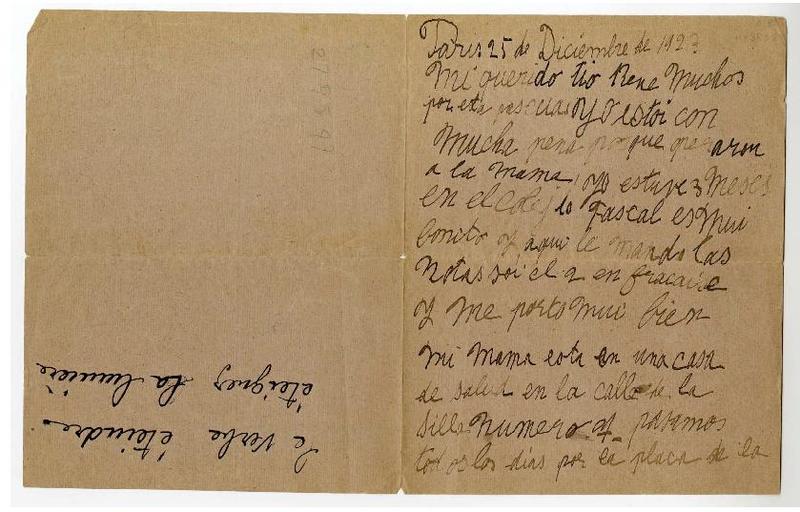 Paris 25 de Diciembre de 1923
Mi querido tio Rene Muchos
por esta pascuas Yo estoi con
Mucha pena porque operaron
a la mama, yo estuve 3 Meses
en el colejio Pascal es Mui
bonito y aqui le mando las
Notas soi el 2 en
y me porto mui bien
Mi Mama esta en una casa
de salud en la calle de la
Silla numero 4 pasamos
todos los dias por la placa de la
Le verbe éteindre
éteignez la lumière